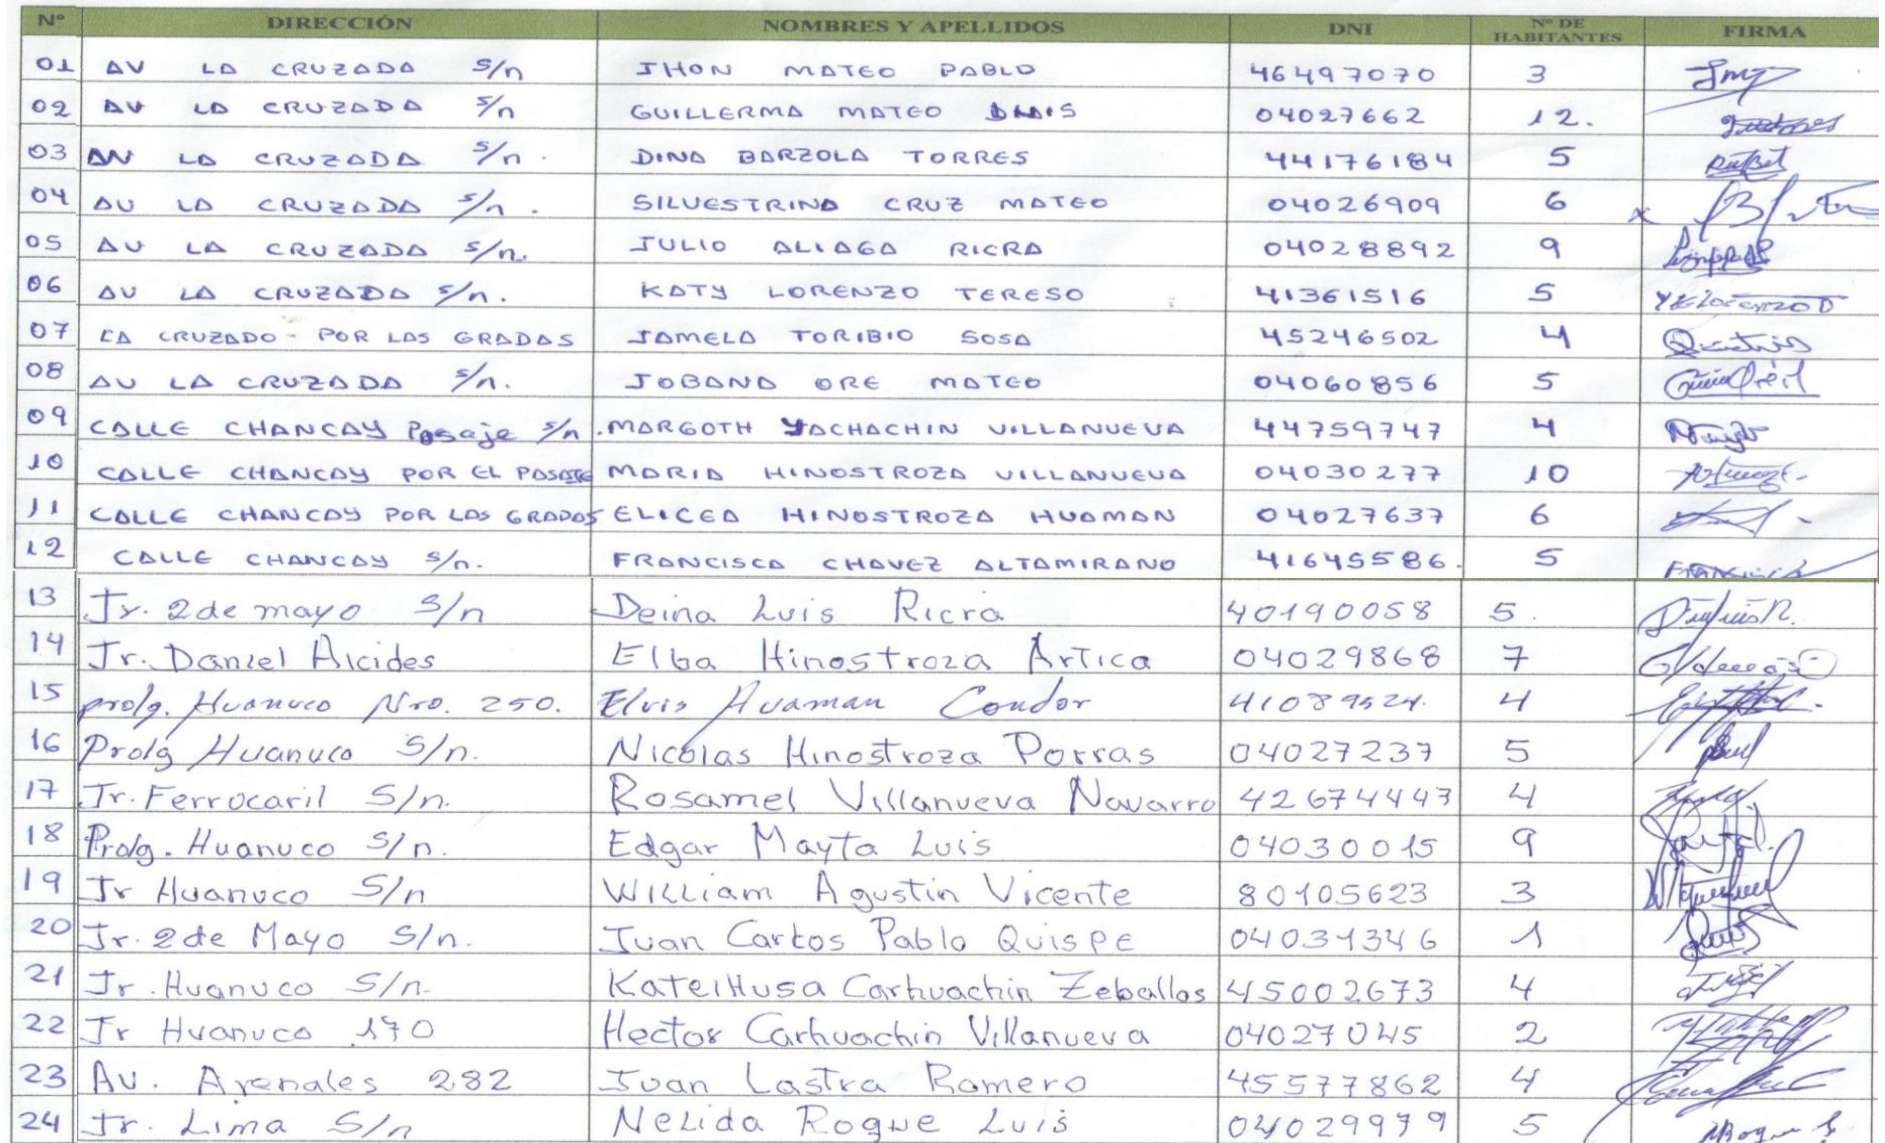 Nº DIRECCIÓN NOMBRES Y APELLIDOS DNI Nº DE HABITANTES FIRMA
01 AV LA CRUZADA S/n JHON MATEO PABLO 46497070 3
02 AV LA CRUZADA S/n GUILLERMA MATEO 04027662 12.
03 AV LA CRUZADA S/n. DINA BARZOLA TORRES 44176184 5
04 AV LA CRUZADA S/n. SILVESTRINA CRUZ MATEO 04026909 6 x
05 AV LA CRUZADA S/n. JULIO ALIAGA RICRA 04028892 9
06 AV LA CRUZADA S/n. KATY LORENZO TERESO 41361516 5
07 LA CRUZADO POR LAS GRADAS JAMELA TORIBIO SOSA 45246502 4
08 AV LA CRUZADA S/n. JOBANA ORE MATEO 04060856 5
09 CALLE CHANCAY Pasaje S/n. MARGOTH YACHACHIN VILLANUEVA 44759747 4
10 CALLE CHANCAY POR EL PASAJE MARIA HINOSTROZA VILLANUEVA 04030277 10
11 CALLE CHANCAY POR LAS GRADAS ELICEA HINOSTROZA HUAMAN 04027637 6
12 CALLE CHANCAY S/n. FRANCISCA CHAVEZ ALTAMIRANO 41645586. 5
13 Jr. 2 de mayo S/n Deina Luis Ricra 40190058 5.
14 Jr. Daniel Alcides Elba Hinostroza Artica 04029868 7
15 prolg. Huanuco Nro. 250. Elvis Huaman Condor 41089524. 4
16 Prolg Huanuco S/n. Nicolas Hinostroza Porras 04027237 5
17 Jr. Ferrocaril S/n. Rosamel Villanueva Navarro 42674447 4
18 Prolg. Huanuco S/n. Edgar Mayta Luis 04030015 9
19 Jr Huanuco S/n William Agustin Vicente 80105623 3
20 Jr. 2 de Mayo S/n. Juan Carlos Pablo Quispe 04031346 1
21 Jr. Huanuco S/n. Kateihusa Carhuachin Zeballos 45002673 4
22 Jr Huanuco 170 Hector Carhuachin Villanueva 04027045 2
23 Av. Arenales 282 Juan Lastra Romero 45577862 4
24 Jr. Lima S/n Nelida Roque Luis 04029979 5